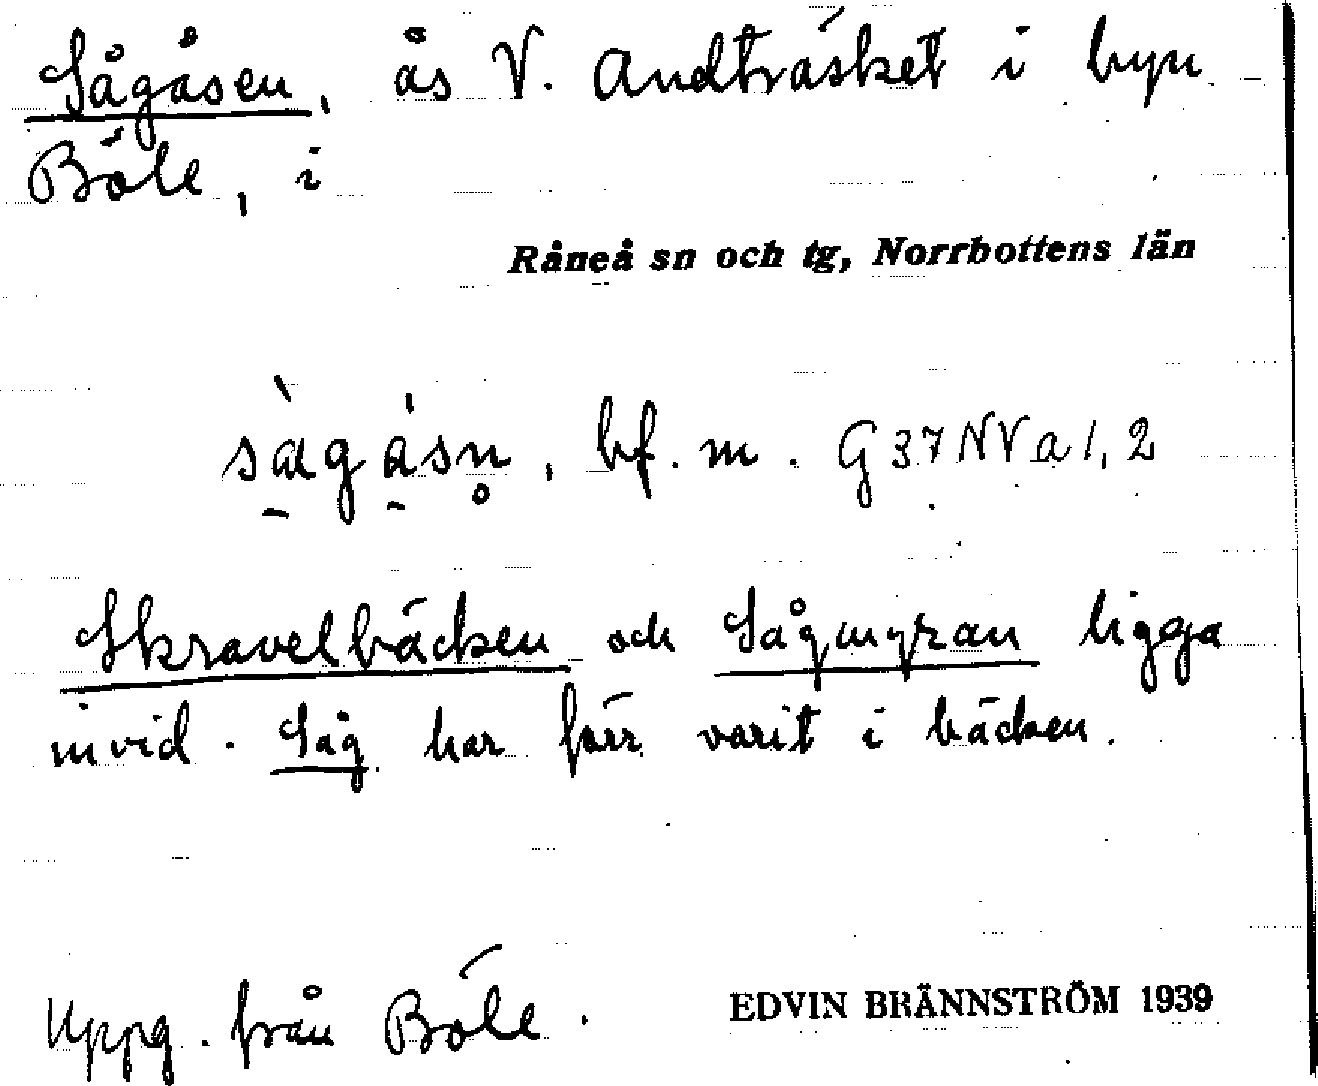 Sågåsen, ås V. Andträsket i byn
Böle, i
Råneå sn och tg, Norrbottens län
sàgásn̥, bf. m. G37NVa1,2
Skravelbäcken och Sågmyran ligga
invid. Såg har förr varit i bäcken.
Uppg. från Böle.
EDVIN BRÄNNSTRÖM 1939